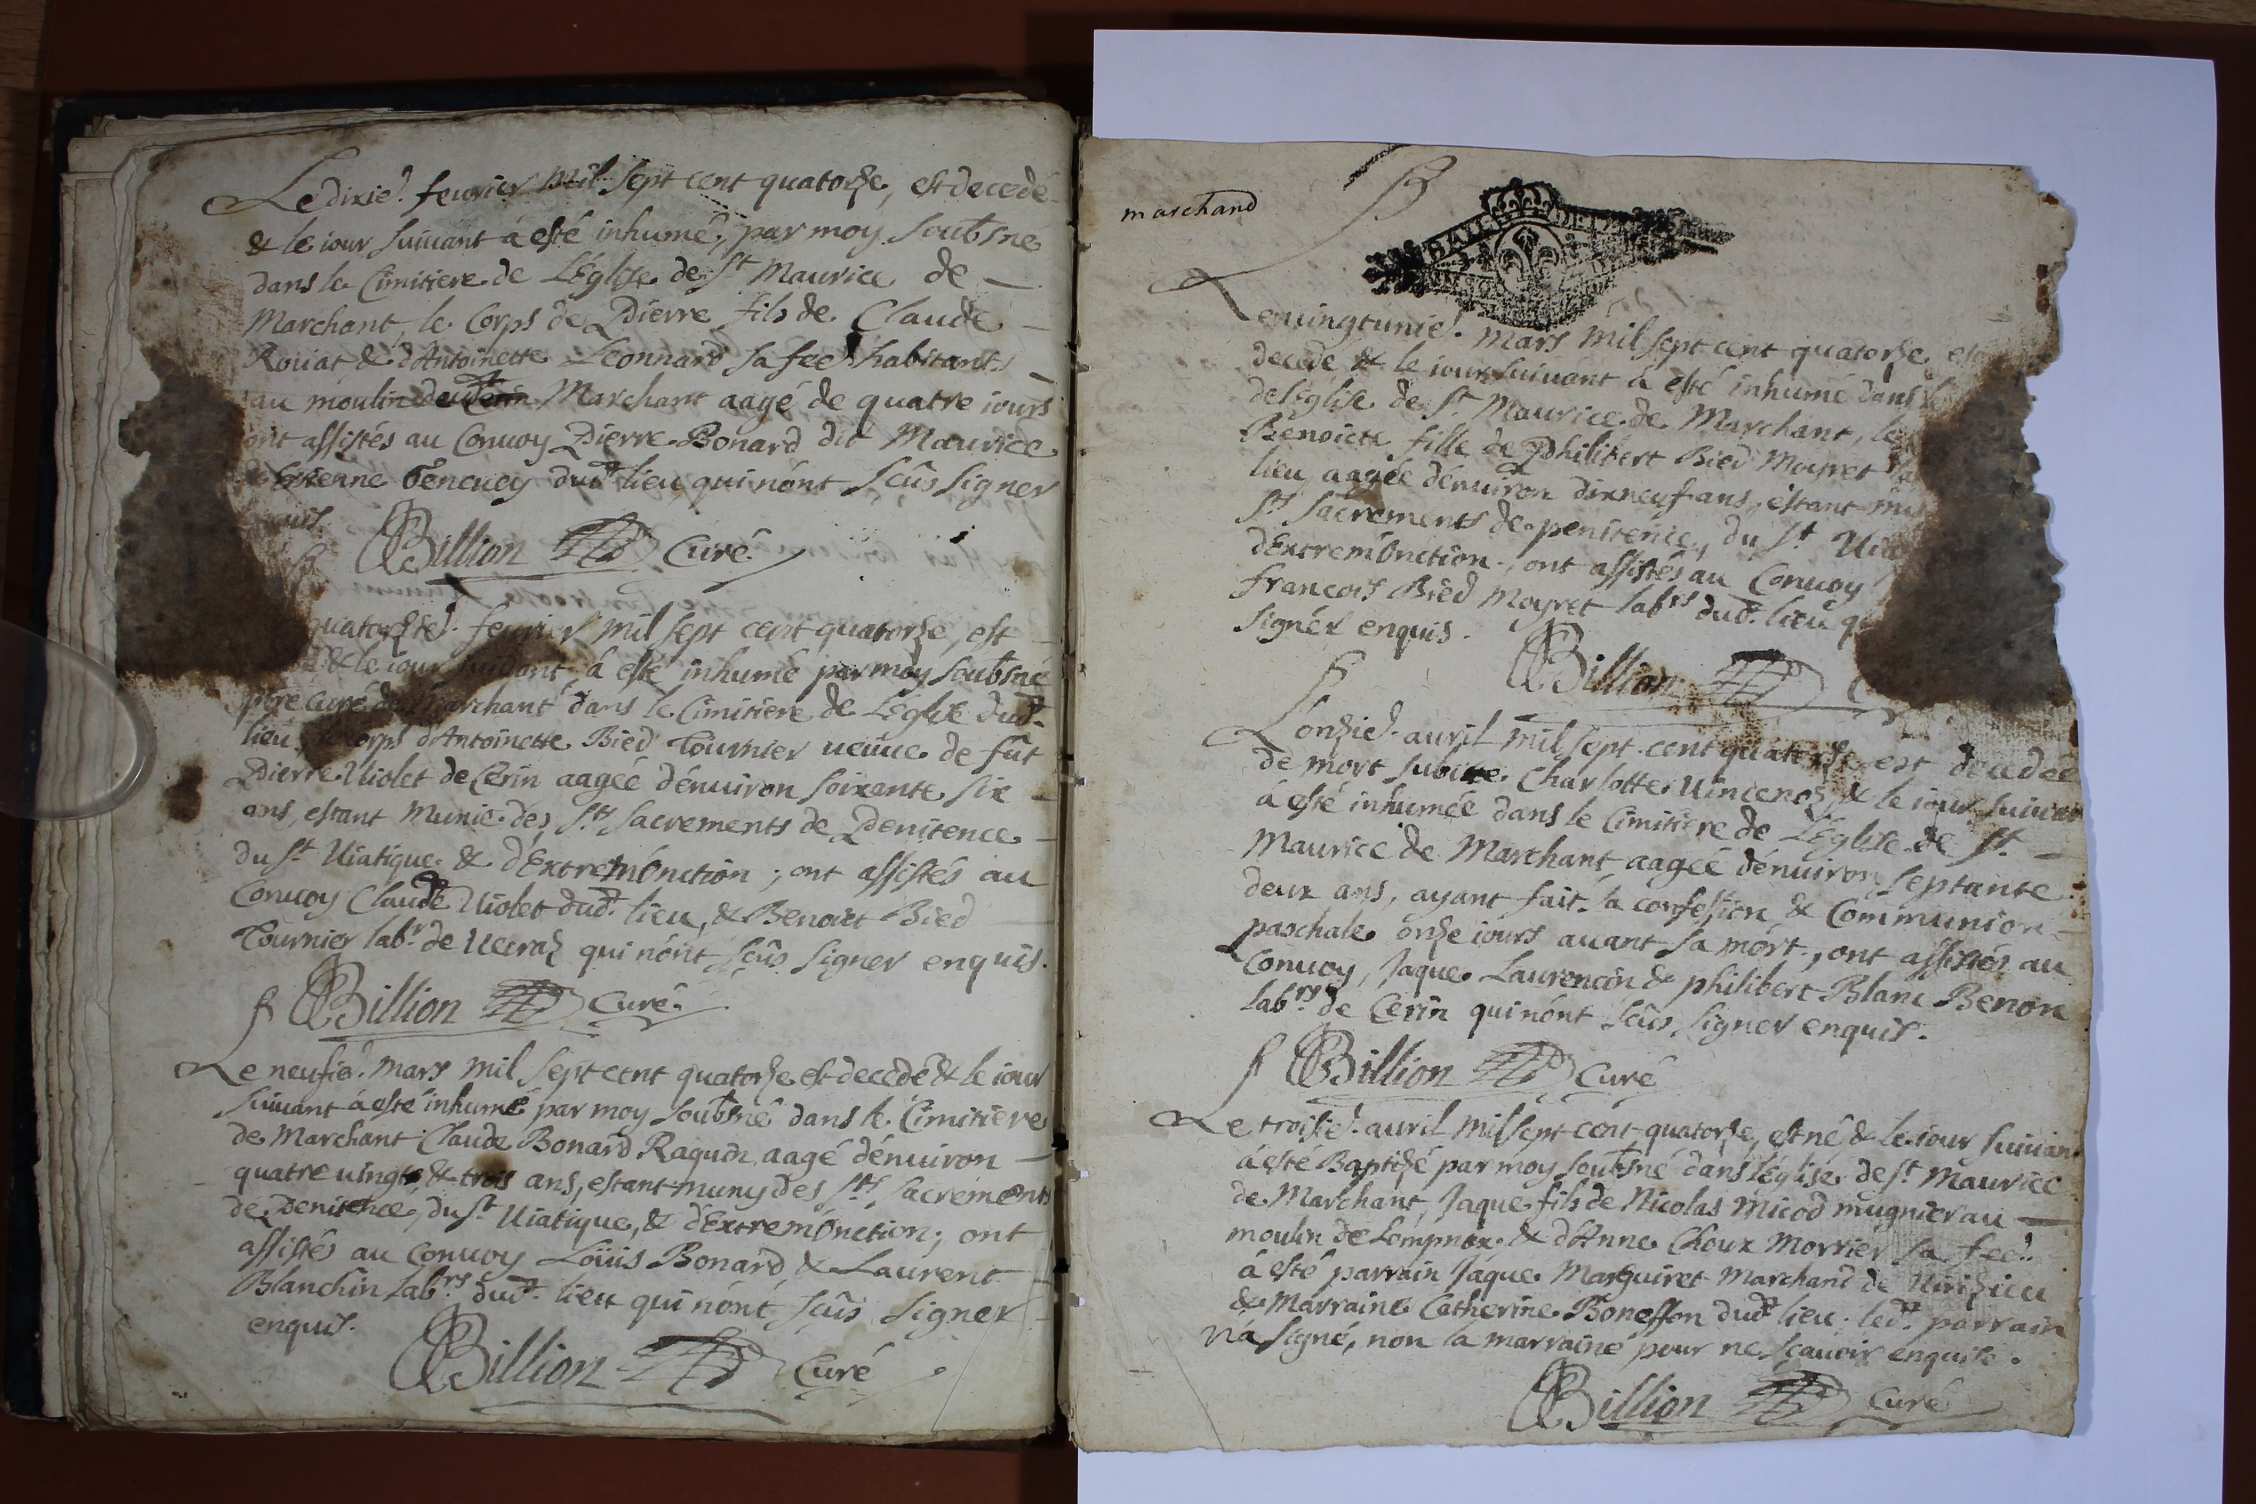 Le dixie.d feurier mil sept cent quatorze, est decedé
& le iour suiuant à esté inhumé, par moy soubsne
dans le Cimitiere de L'Église de St Maurice de
Marchant, le Corps de Pierre fils de Claude
Roüat & d'Antoinette Leonnard sa fee habitants
au moulin Marchant aagé de quatre iours
ont assistés au Conuoy Pierre Bonard dit Maurice
Estienne dud.t lieu qui n'ont sçûs signer
enquis.
Billion Curé
quatorzie.d feurier mil sept cent quatorze, est
& le iour suiuant à esté inhumé par moy soubsné
ptre Curé de Marchant dans le Cimitiere de L'eglise dud.t
lieu, le Corps d'Antoinette Bied Tournier ueüue de fût
Pierre Uiolet de Cerin aagée d'enuiron soixante six
ans, estant Munie des Sts sacrements de Penitence
du St Uiatique & d'Extremonction; ont assistés au
Conuoy Claude Uiolet dud.t lieu, & Benoict Bied
Tournier lab.r de qui nônt sçûs signer enquis.
Billion Curé
Le neufie.d Mars mil sept cent quatorze est decedé & le iour
suiuant à esté inhumé par moy soubsné dans le Cimitiere
de Marchant Claude Bonard aagé d'enuiron
quatre uingts & trois ans, estant muny des Sts Sacrements
de Penitence, du St Uiatique, & d'Extremonction; ont
assistés au Conuoy Loüis Bonard & Laurent
Blanchin lab.rs dud.t lieu qui nônt sçûs signer
enquis.
Billion Curé
marchand
Le uingtunie.d Mars mil sept cent quatorze est
decede & le iour suiuant à esté inhumé dans le
de l'église de St Maurice de Marchant, le
Benoicte fille de Philibert Bied Moyret
lieu aagée d'enuiron dixneuf ans, estant
Sts Sacrements de penitence, du St
d'Extremonction, ont assistés au Conuoy
francois Bied Moyret lab.rs dud.t lieu
signer enquis.
Billion
L'onzie.d auril mil sept cent quatorze est decedée
de mort subite Charlotte & le iour suiuant
à esté inhumée dans le Cimitiere de L'Église de St
Maurice de Marchant aagée d'enuiron septante
deux ans, ayant fait sa confession & Communion
paschale onze iours auant sa mort, ont assistés au
Conuoy, Jaque Laurencin & philibert Blanc Benon
lab.rs de Cerin qui nônt sçûs signer enquis.
Billion Curé
Le troisie.d auril mil sept cent quatorze, est né & le iour suiuant
à esté Baptizé par moy soubsné dans l'église de St Maurice
de Marchant, Jaque fils de Nicolas Micod mugnier au
moulin de Lompnax & d'Anne Choux Morrier sa fee.
à esté parrain Jaque Marguiret Marchand de
& Marraine Catherine Boneffon dud.t lieu; led.t parrain
n'a signé, non la marraine pour ne sçauoir enquise.
Billion Curé